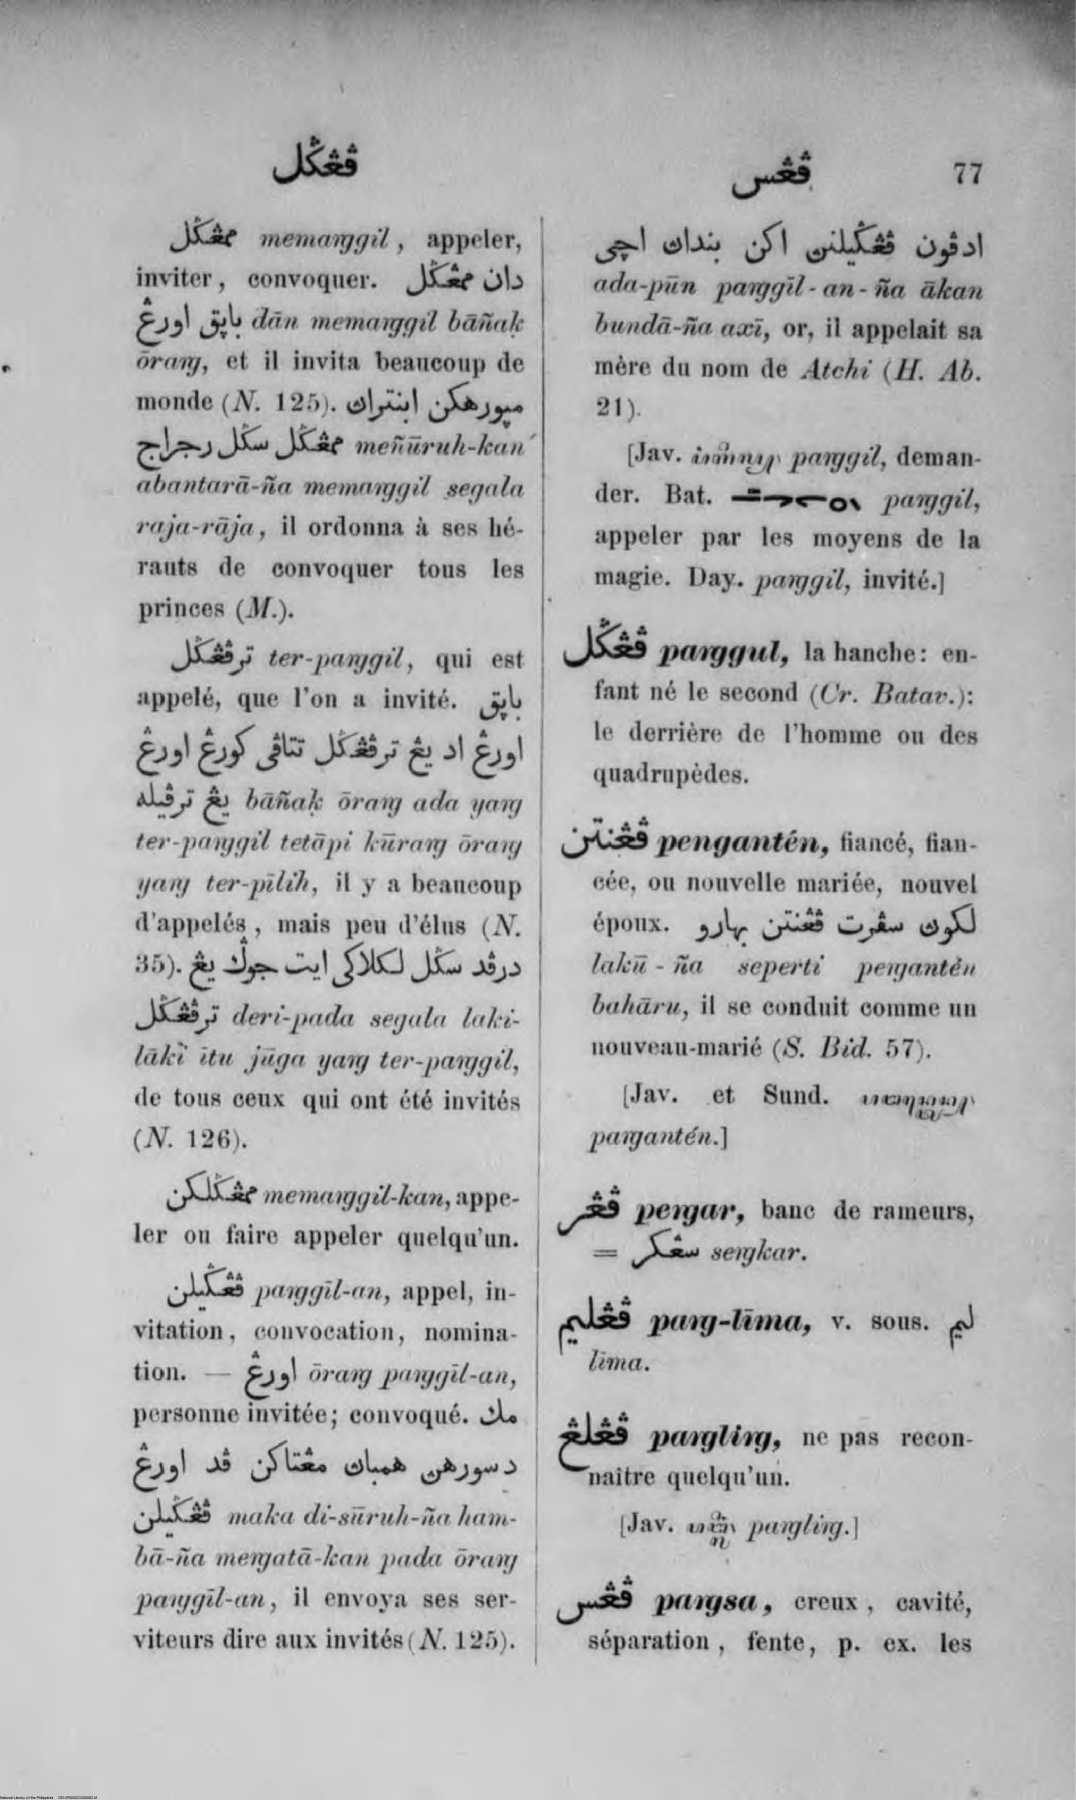 ڤڠݢل
ڤڠس
77
ممڠݢل memaŋggil, appeler,
inviter, convoquer. دان ممڠݢل
باڽق اورڠ dān memaŋggil bāñaḳ
ōraŋ, et il invita beaucoup de
monde (N. 125).
ممڠݢل سݢل رجراج meñūruh-kan
abantarā-ña memaŋggil segala
raja-rāja, il ordonna à ses hé-
rauts de convoquer tous les
princes (M.).
ترڤڠݢل ter-paŋggil, qui est
appelé, que l'on a invité. باڽق
اورڠ اد يڠ ترڤڠݢل تتاڤى كورڠ اورڠ
يڠ ترڤيله bāñaḳ ōraŋ ada yaŋ
ter-paŋggil tetāpi kūraŋ ōraŋ
yaŋ ter-pīlih, il y a beaucoup
d'appelés, mais peu d'élus (N.
35). درڤد سݢل لكلاكى ايت جوݢ يڠ
ترڤڠݢل deri-pada segala laki-
lākī ītu jūga yaŋ ter-paŋggil,
de tous ceux qui ont été invités
(N. 126).
ممڠݢلكن memaŋggil-kan, appe-
ler ou faire appeler quelqu'un.
ڤڠݢيلن paŋggīl-an, appel, in-
vitation, convocation, nomina-
tion. — اورڠ ōraŋ paŋggīl-an,
personne invitée; convoqué. مك
دسورهن همبان مڠتاكن ڤد اورڠ
ڤڠݢيلن maka di-sūruh-ña ham-
bā-ña meŋatā-kan pada ōraŋ
paŋggīl-an, il envoya ses ser-
viteurs dire aux invités (N. 125).
ادڤون ڤڠݢيلنن اكن بندان اچى
ada-pūn paŋggīl-an-ña ākan
bundā-ña axī, or, il appelait sa
mère du nom de Atchi (H. Ab.
21).
[Jav. paŋggil, deman-
der. Bat. paŋggil,
appeler par les moyens de la
magie. Day. paŋggil, invité.]
ڤڠݢل paŋggul, la hanche: en-
fant né le second (Cr. Batav.):
le derrière de l'homme ou des
quadrupèdes.
ڤڠنتن pengantén, fiancé, fian-
cée, ou nouvelle mariée, nouvel
époux. لكون سڤرت ڤڠنتن بهارو
lakū-ña seperti peŋantén
bahāru, il se conduit comme un
nouveau-marié (S. Bid. 57).
[Jav. et Sund.
paŋantén.]
ڤڠر peŋar, banc de rameurs,
= سڠكر seŋkar.
ڤڠليم paŋ-līma, v. sous. ليم
līma.
ڤڠلڠ paŋliŋ, ne pas recon-
naître quelqu'un.
[Jav. paŋliŋ.]
ڤڠس paŋsa, creux, cavité,
séparation, fente, p. ex. les